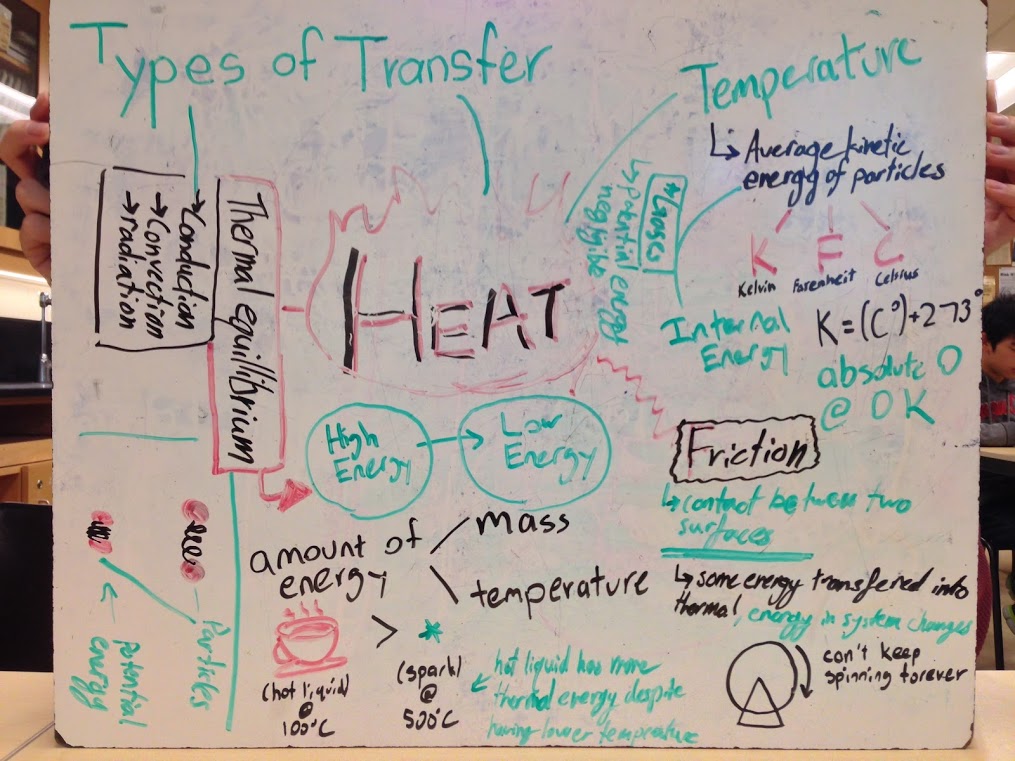 Types of Transfer
→ Conduction
→ Convection
→ radiation
Thermal equilibrium
HEAT
Temperature
↳ Average kinetic
energy of particles
K F C
Kelvin Farenheit Celsius
K = (C°) + 273°
absolute 0
@ 0K
↳ potential energy
negligible
Internal
Energy
High
Energy
→
Low
Energy
Friction
↳ contact between two
surfaces
↳ some energy transfered into
thermal, energy in system changes
can't keep
spinning forever
amount of
energy
mass
temperature
>
*
(hot liquid)
@
100°C
(spark)
@
500°C
hot liquid has more
thermal energy despite
having lower temperature
Particles
← potential
energy